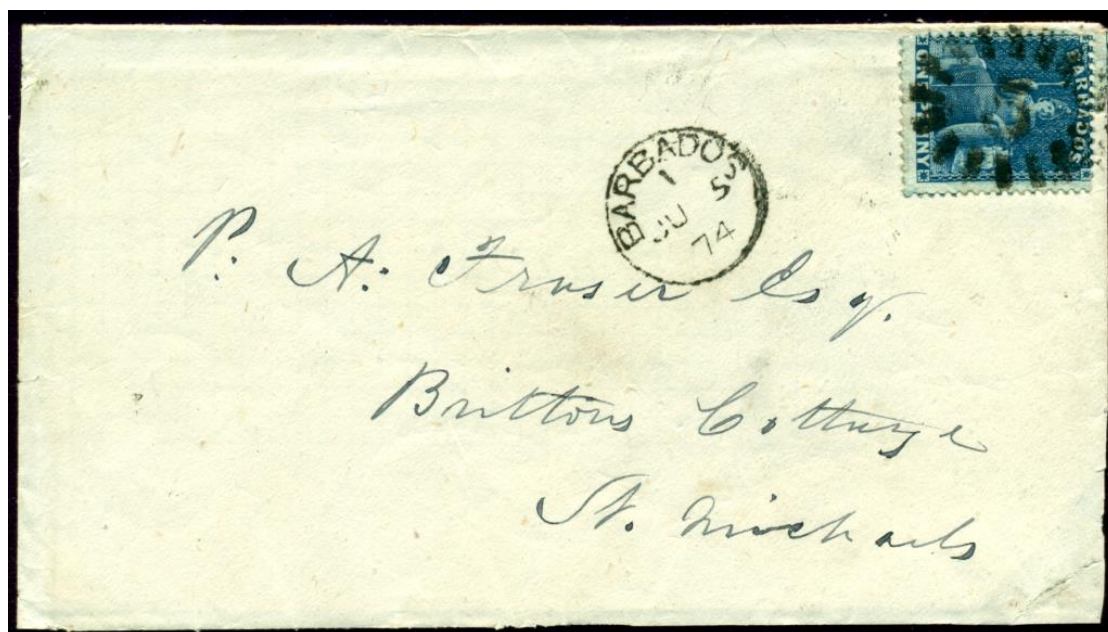 BARBADOS
ONE PENNY
BARBADOS
1
JU 5
74
P. A: Fraser Esq.
Brittons Cottage
St. Michaels